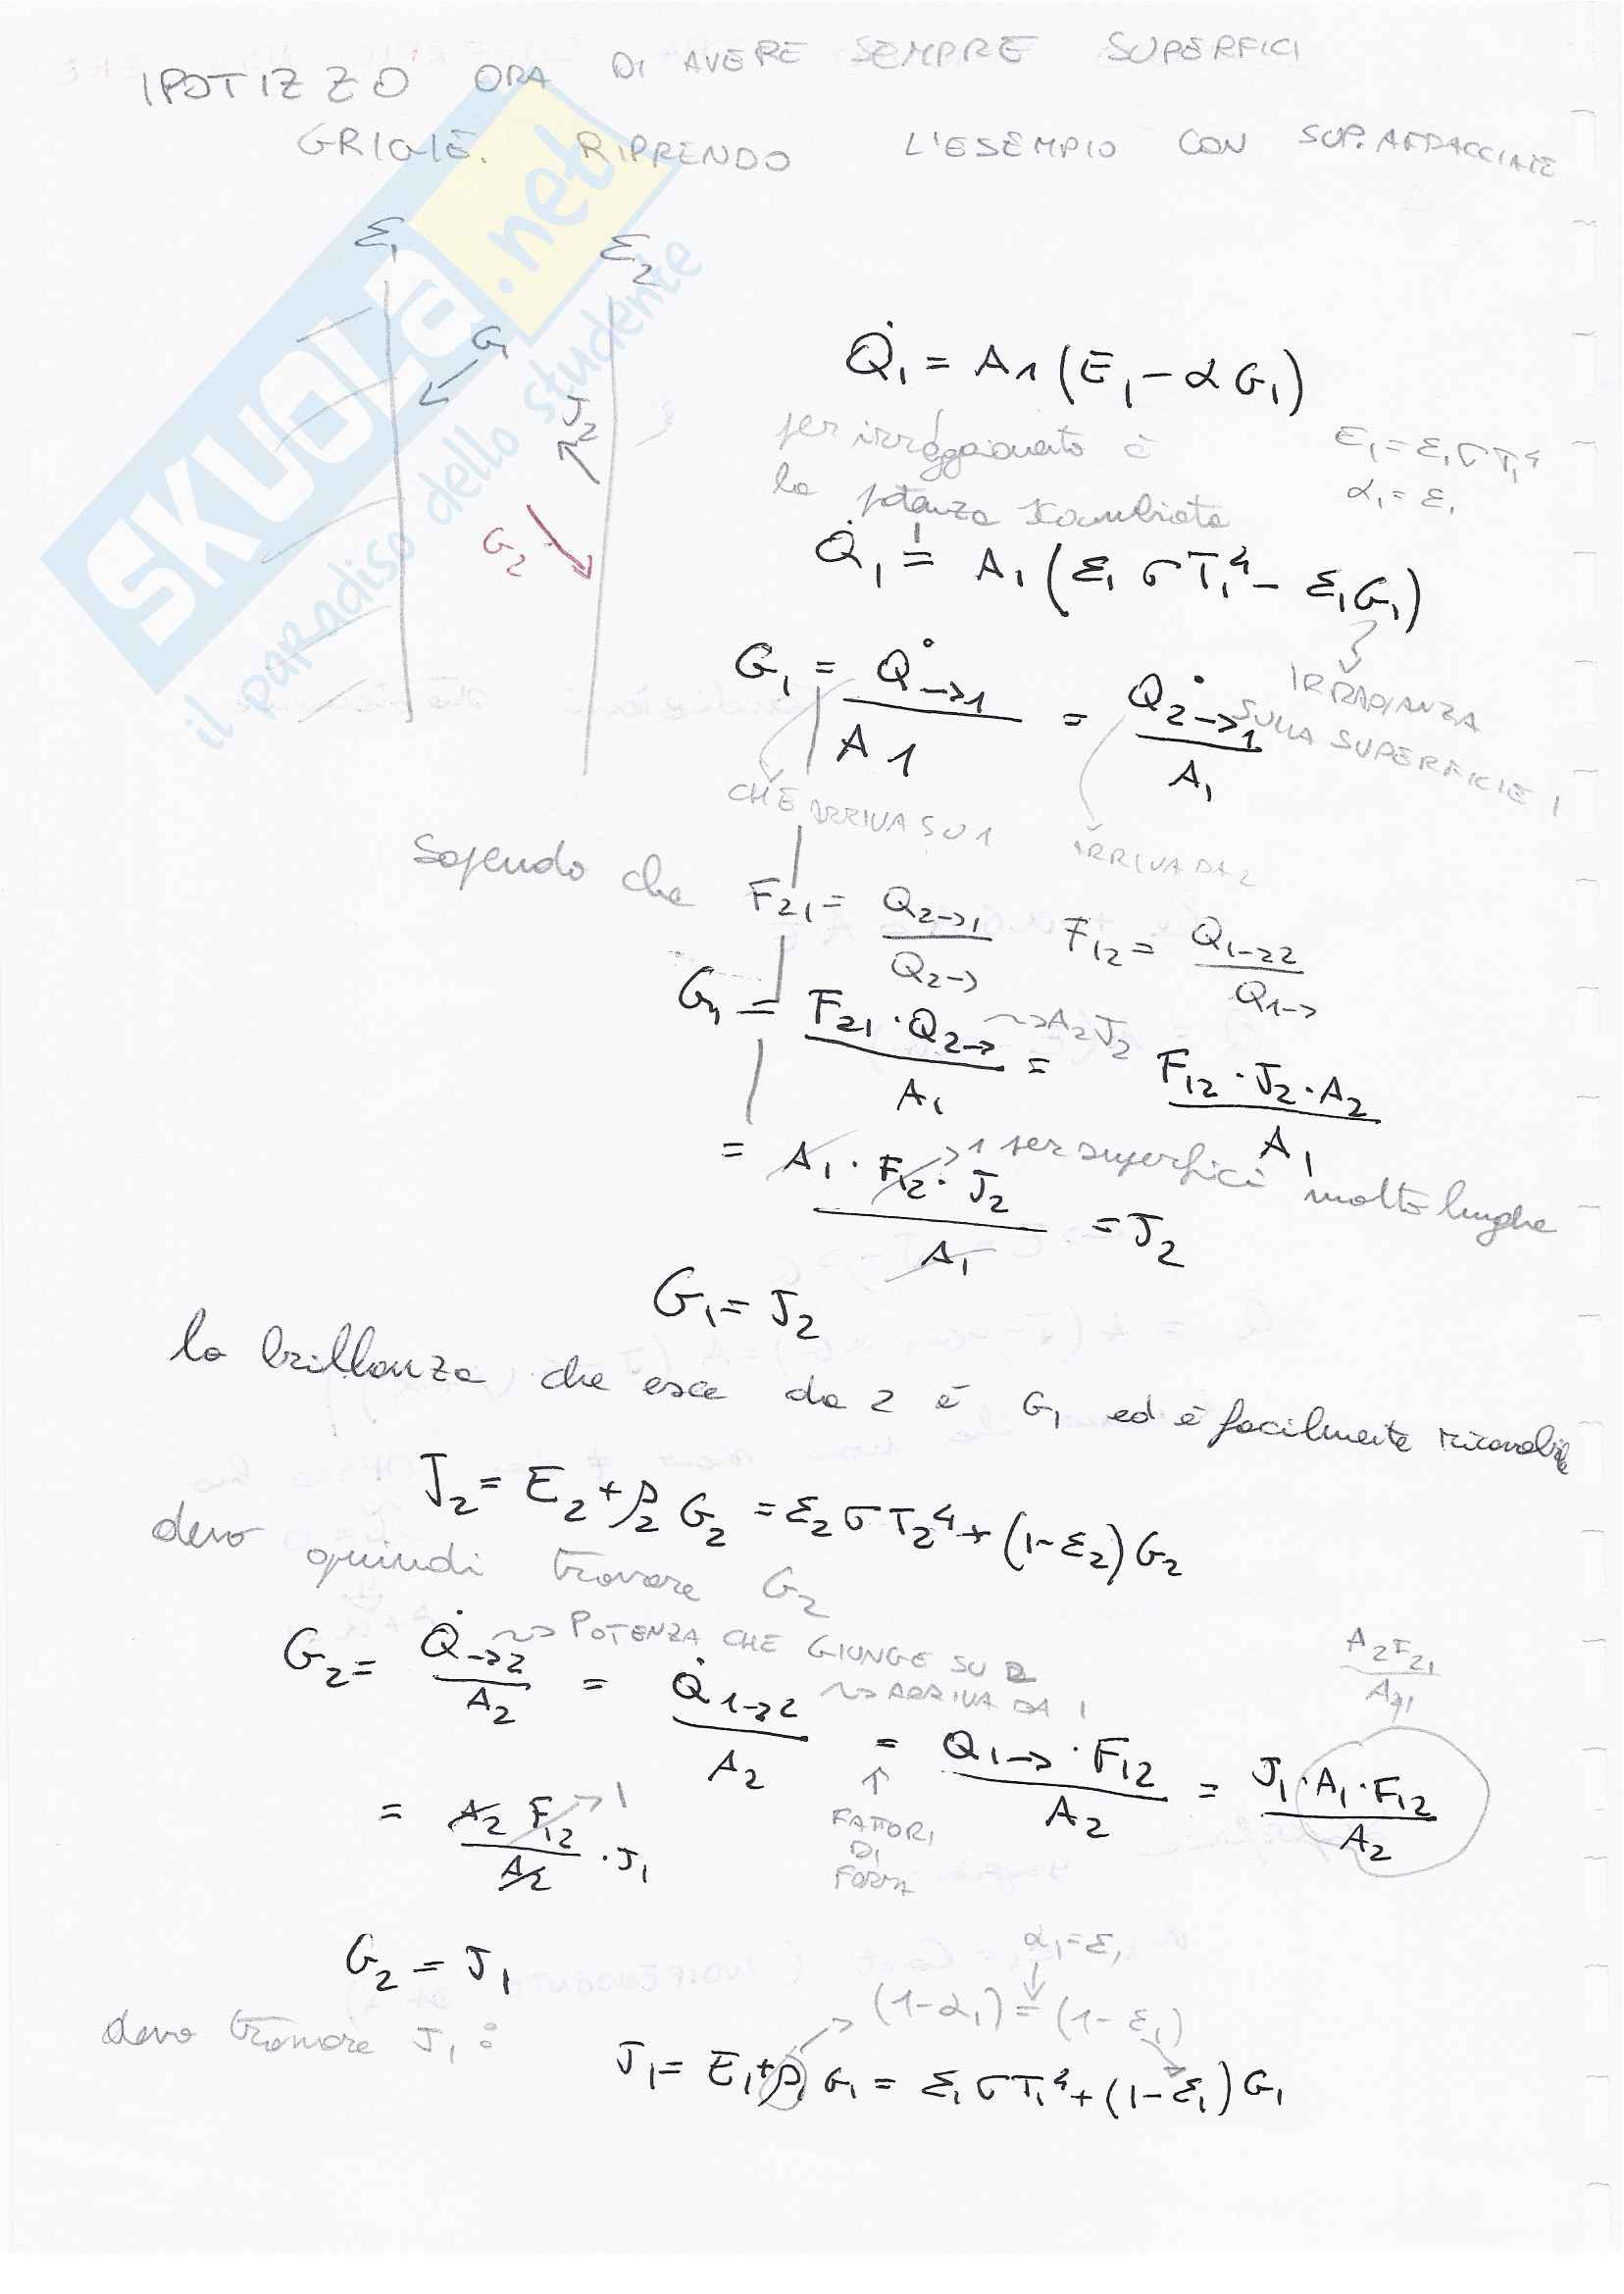 IPOTIZZO ORA DI AVERE SEMPRE SUPERFICI
GRIGIE. RIPRENDO L'ESEMPIO CON SUP. AFFACCIATE
ε₁ ε₂
G₁
J₂
G₂
Q̇₁ = A1 (E₁ - α G₁)
per irraggiamento è
la potenza scambiata
E₁ = ε₁ σ T₁⁴
α₁ = ε₁
Q̇₁ = A₁ (ε₁ σ T₁⁴ - ε₁ G₁)
IRRADIANZA
SULLA SUPERFICIE 1
G₁ = Q̇→1 / A1 = Q̇2→1 / A₁
CHE ARRIVA SU 1
ARRIVA DA 2
Sapendo che F₂₁ = Q2→1 / Q2→ F₁₂ = Q1→2 / Q1→
G₁ = F₂₁ · Q2→ / A₁ = F₁₂ · J₂ · A₂ / A₁
~> A₂J₂
= A₁ · F₁₂ · J₂ / A₁ = J₂
→ 1 per superfici molto lunghe
G₁ = J₂
la brillanza che esce da 2 è G₁ ed è facilmente ricavabile
J₂ = E₂ + ρ₂ G₂ = ε₂ σ T₂⁴ + (1-ε₂) G₂
devo quindi trovare G₂
G₂ = Q̇→2 / A₂ = Q̇1→2 / A₂ = Q1→ · F₁₂ / A₂ = J₁ · A₁ · F₁₂ / A₂
~> POTENZA CHE GIUNGE SU 2
~> ARRIVA DA 1
↑
FATTORI
DI
FORMA
= A₂ F₁₂ / A₂ · J₁
→ 1
G₂ = J₁
α₁ = ε₁
(1-α₁) = (1-ε₁)
devo trovare J₁:
J₁ = E₁ + ρ₁ G₁ = ε₁ σ T₁⁴ + (1-ε₁) G₁
SKUOLA.net
il paradiso dello studente